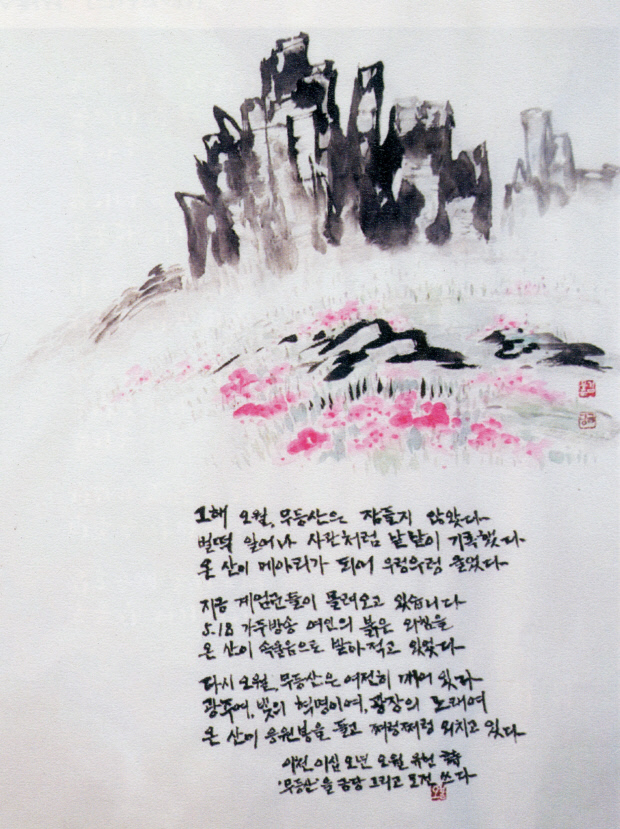 그해 오월, 무등산은 잠들지 않았다
벌떡 일어나 사관처럼 낱낱이 기록했다
온 산이 메아리가 되어 우렁우렁 울었다
지금 계엄군들이 몰려오고 있습니다
5.18 가두방송 여인의 붉은 외침을
온 산이 속울음으로 받아적고 있었다
다시 오월, 무등산은 여전히 깨어 있다
광주여, 빛의 혁명이여, 광장의 노래여
온 산이 응원봉을 들고 쩌렁쩌렁 외치고 있다
이천 이십 오년 오월 유헌 詩
'무등산'을 금당 그리고 오전 쓰다